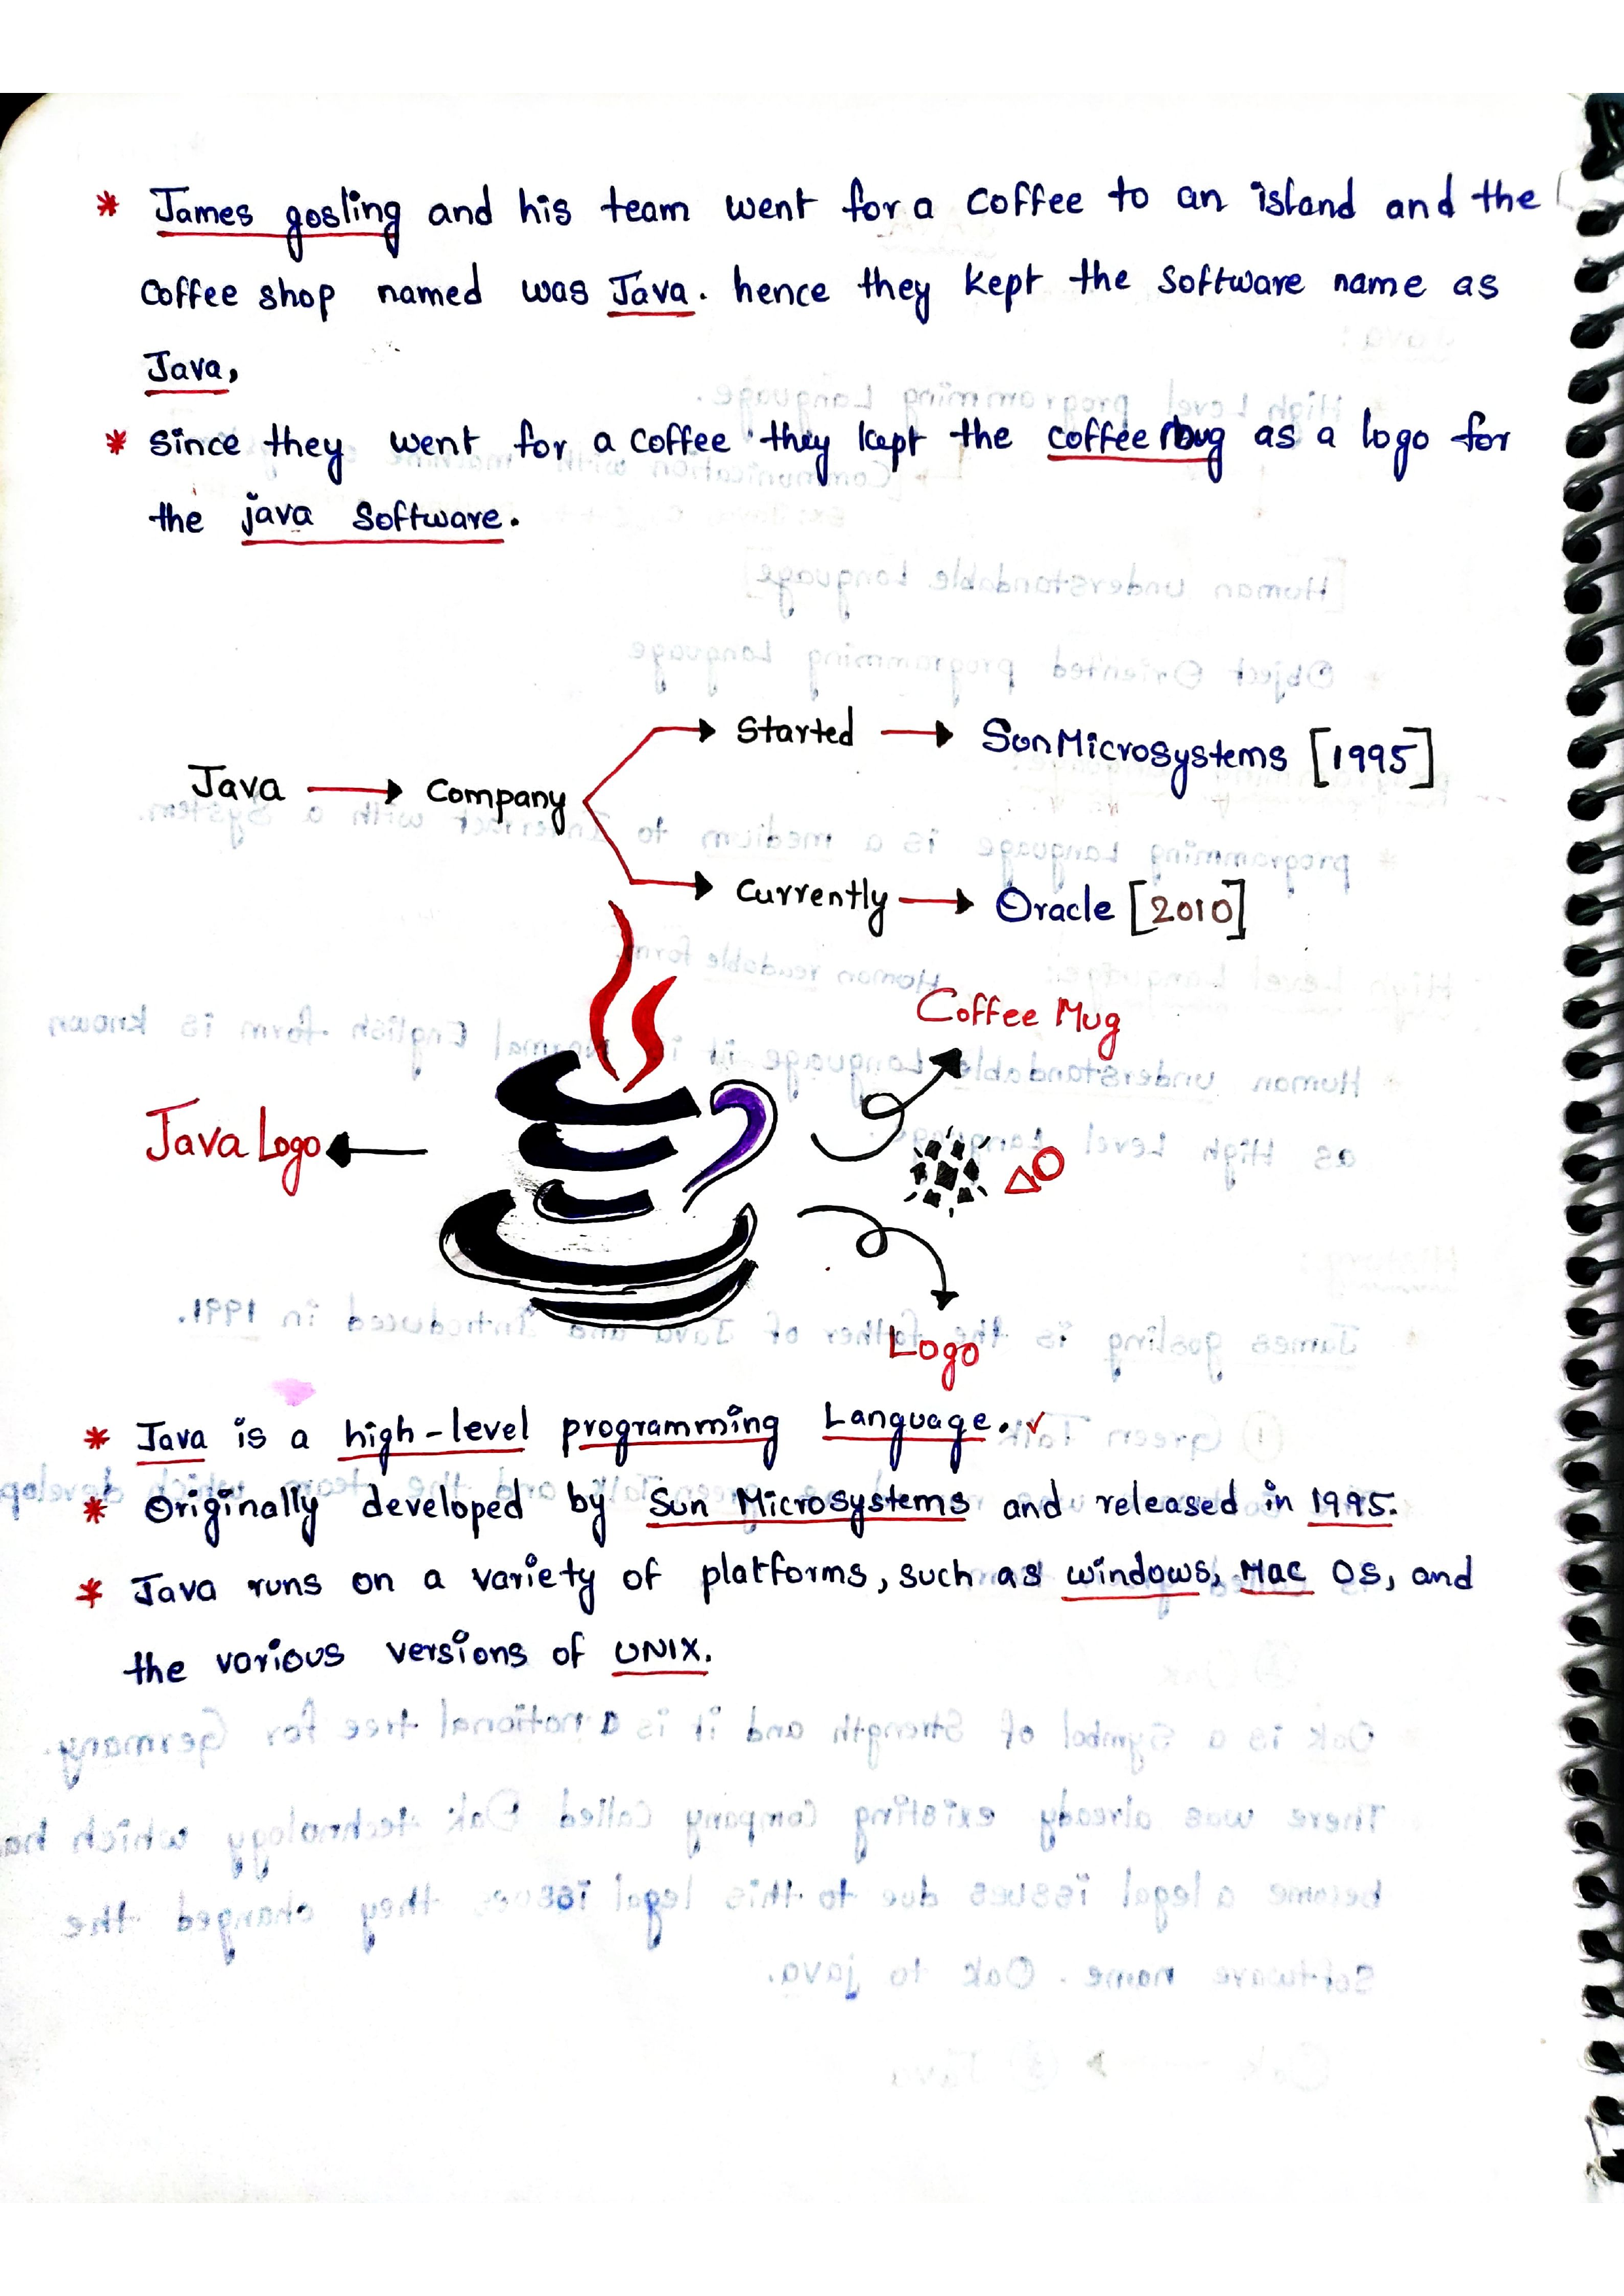 * James gosling and his team went for a coffee to an island and the
coffee shop named was Java. hence they kept the software name as
Java,
* since they went for a coffee they kept the coffee mug as a logo for
the java software.
Started → Sun Microsystems [1995]
Java → Company
Currently → Oracle [2010]
Coffee Mug
Java Logo
Logo
* Java is a high-level programming Language. ✓
* Originally developed by Sun Microsystems and released in 1995.
* Java runs on a variety of platforms, such as windows, Mac OS, and
the various versions of UNIX.